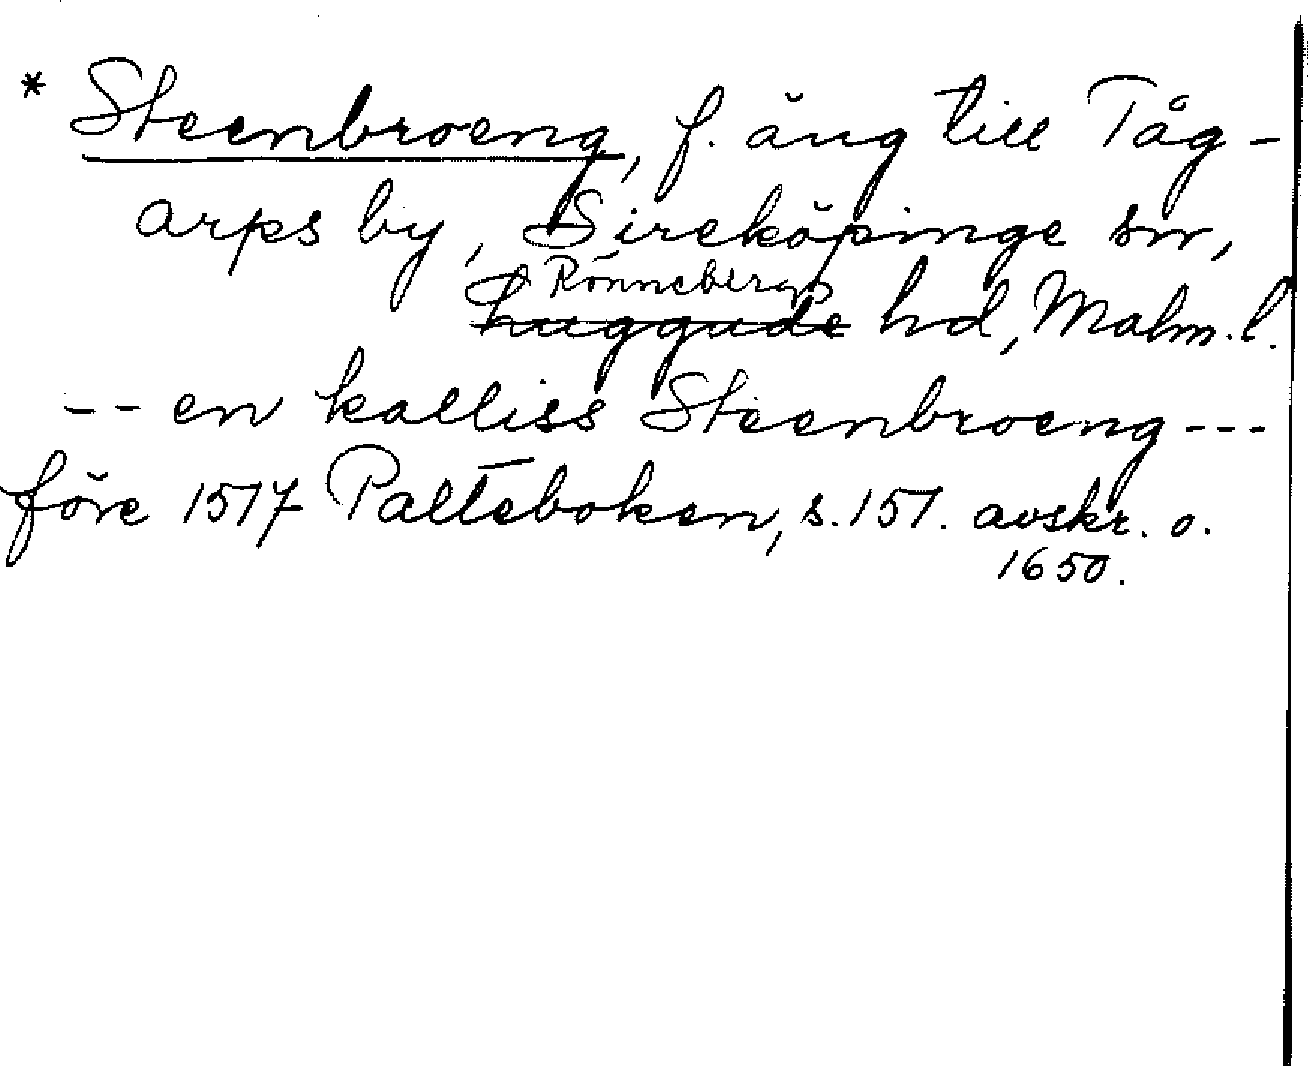 * Steenbroeng, f. äng till Tåg-
arps by, Sireköpinge sn,
Rönnebergs
Luggude hd, Malm. l.
-- en kalliss Steenbroeng ---
före 1517 Palteboken, s. 151. avskr. o.
1650.